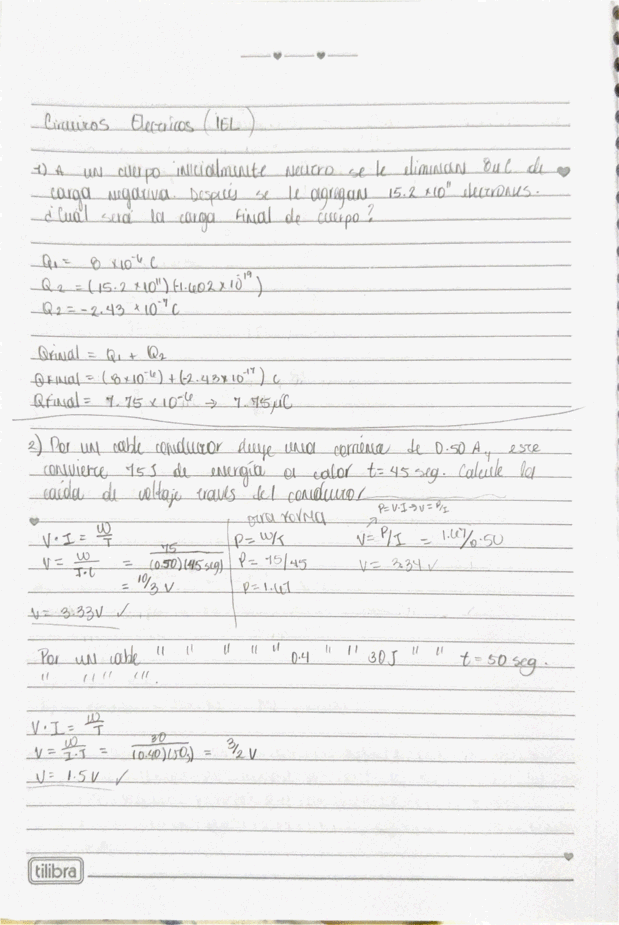 Circuitos Electricos (IEL)
1) A un cuerpo inicialmente neutro se le eliminan 8uC de
carga negativa. Después se le agregan 15.2 x10¹¹ electrones.
¿Cuál será la carga final de cuerpo?
Q1 = 8 x10⁻⁶ C
Q2 = (15.2 x10¹¹)(-1.602x10⁻¹⁹)
Q2 = -2.43 x 10⁻⁷ C
Qfinal = Q1 + Q2
Qfinal = (8x10⁻⁶)+(-2.43x10⁻¹⁷) C
Qfinal = 7.75 x 10⁻⁶ → 7.75 µC
2) Por un cable conductor fluye una corriente de 0.50 A, y este
convierte 75J de energía a calor t=45 seg. Calcule la
caída de voltaje través del conductor
V·I = W/T
V = W/I·t = 75/(0.50)(45seg)
= 10/3 V
V = 3.33V ✓
otra forma
P= W/t
P= 75/45
P= 1.67
P=V·I→V=P/I
V= P/I = 1.67/0.50
V= 3.34 ✓
Por un cable " " " " " " 0.4 " " 30J " " t=50 seg.
" " " " " ".
V·I = W/T
V = W/I·T = 30/(0.40)(50s) = 3/2 V
V= 1.5V ✓
tilibra